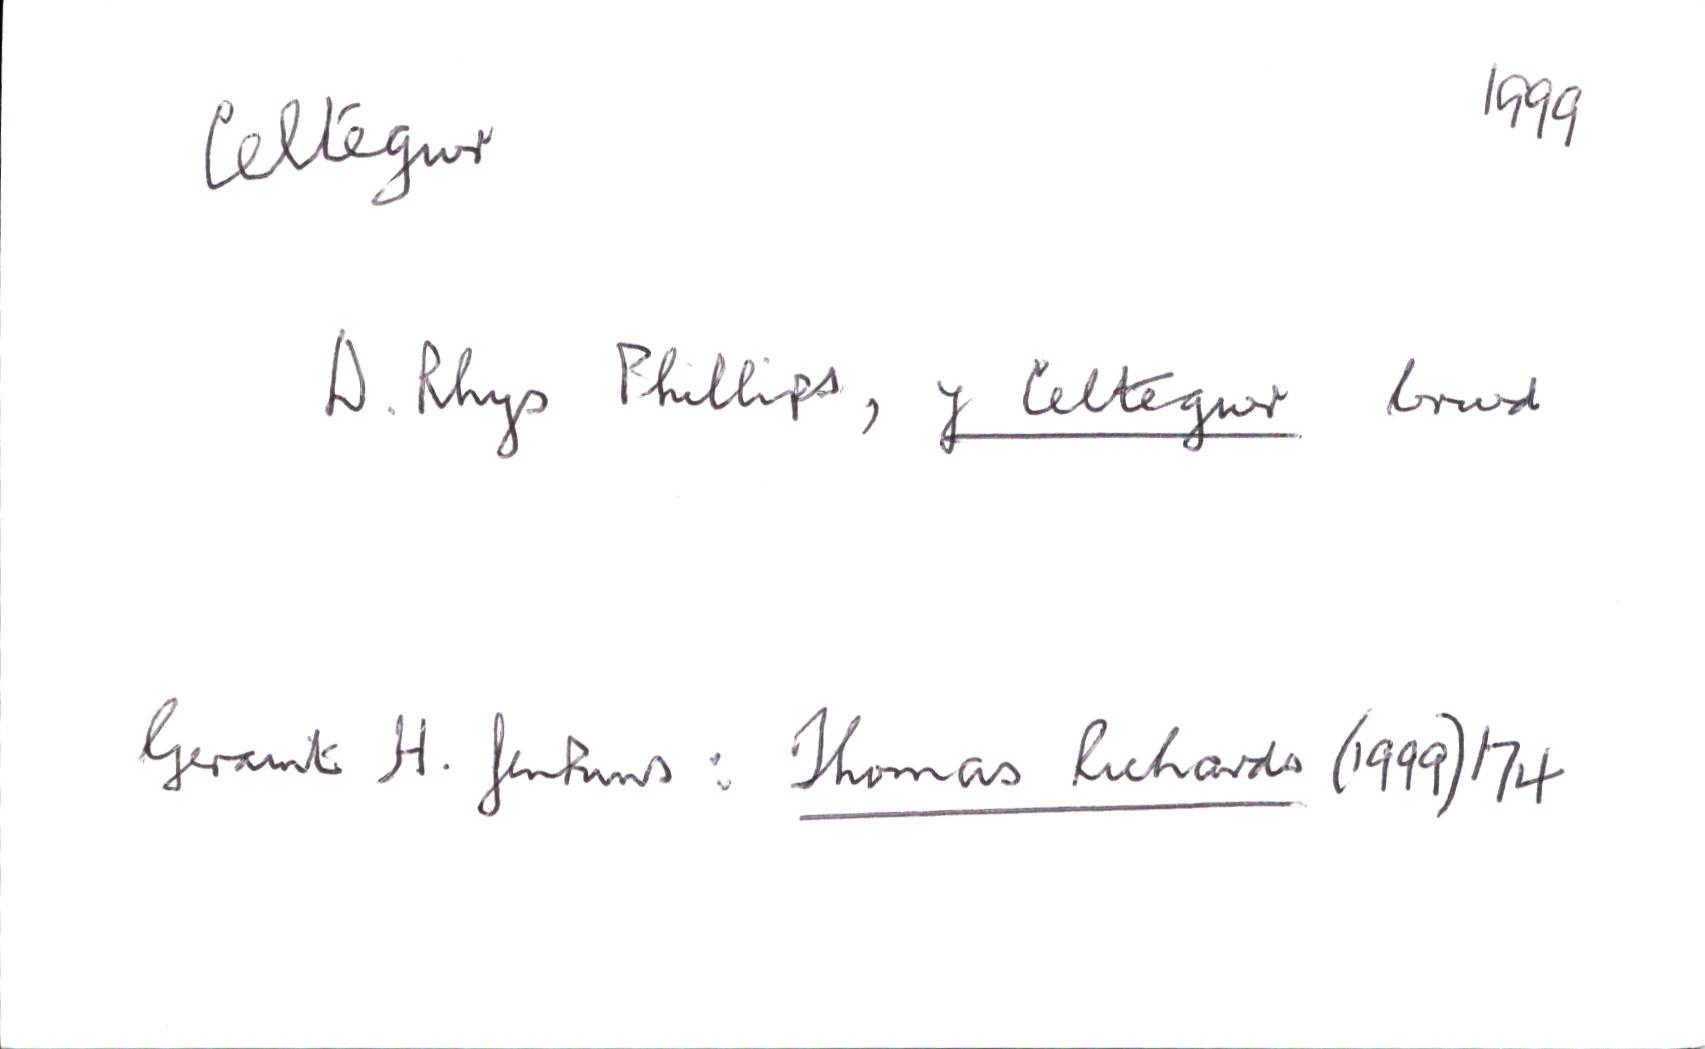 Celtegwr 1999
D. Rhys Phillips, y Celtegwr brwd
Geraint H. Jenkins : Thomas Richards (1999) 174